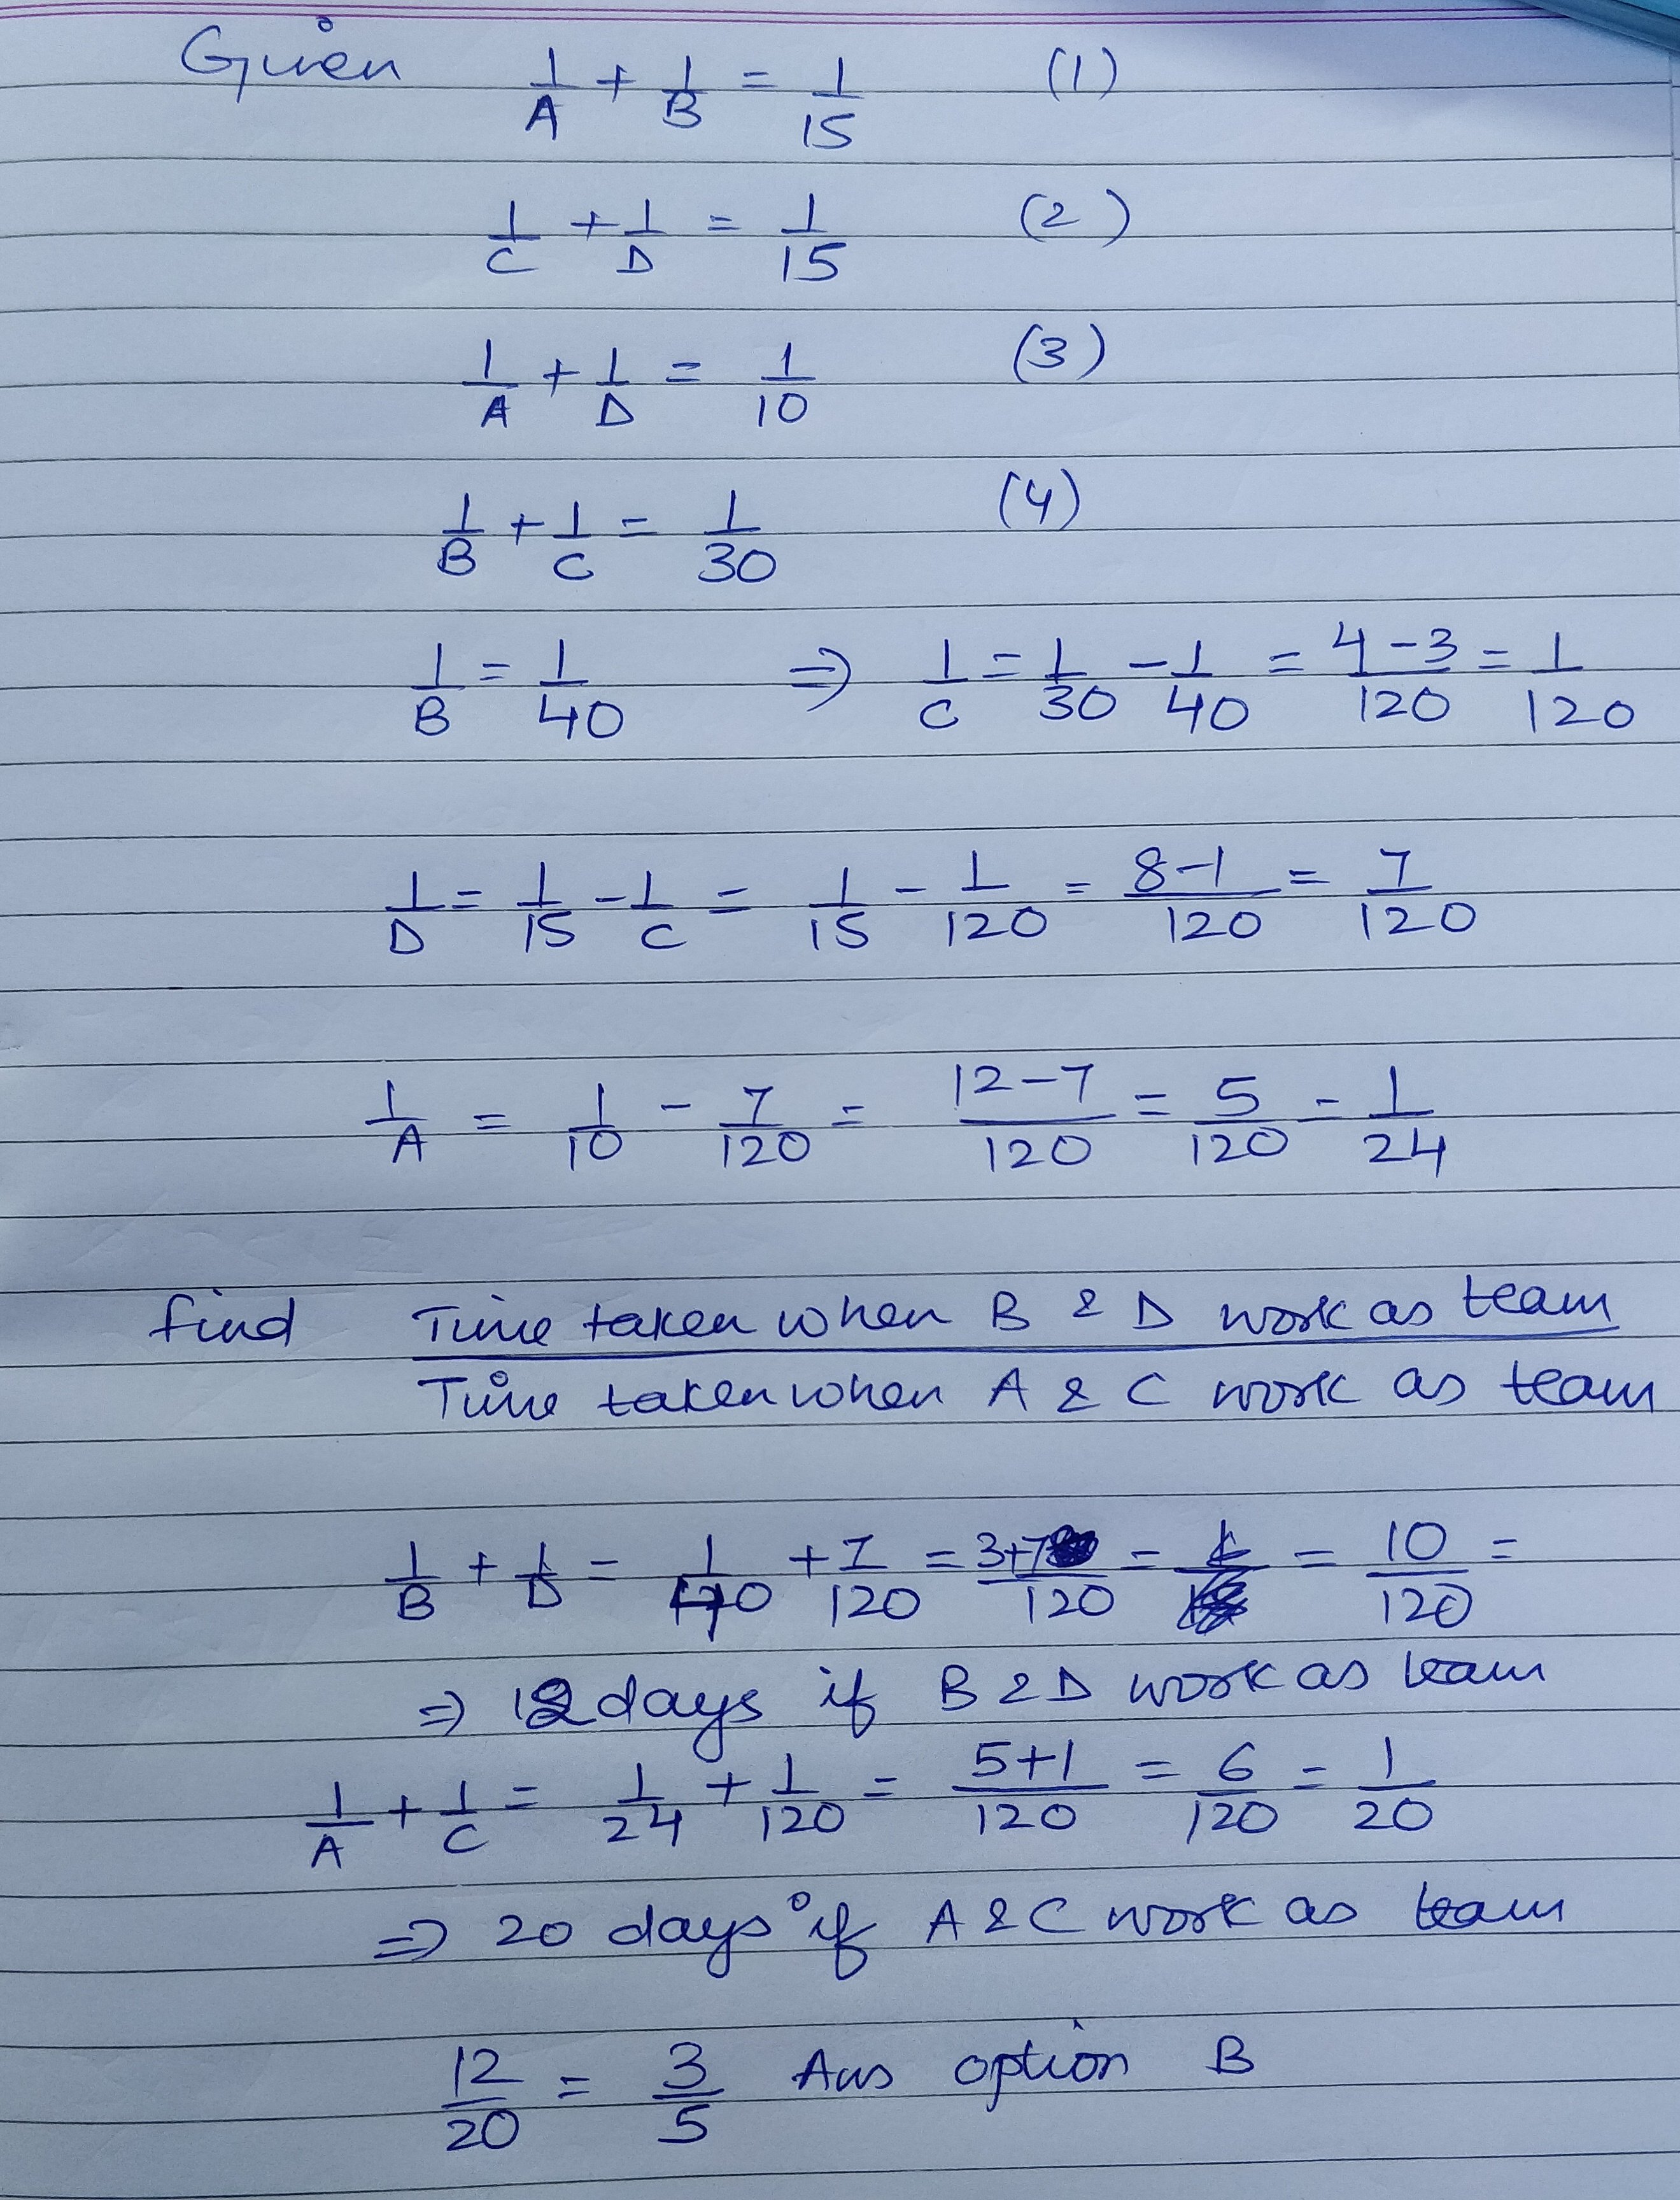 Given 1/A + 1/B = 1/15 (1)
1/C + 1/D = 1/15 (2)
1/A + 1/D = 1/10 (3)
1/B + 1/C = 1/30 (4)
1/B = 1/40 ⇒ 1/C = 1/30 - 1/40 = 4-3/120 = 1/120
1/D = 1/15 - 1/C = 1/15 - 1/120 = 8-1/120 = 7/120
1/A = 1/10 - 7/120 = 12-7/120 = 5/120 = 1/24
find Time taken when B & D work as team
Time taken when A & C work as team
1/B + 1/D = 1/40 + 7/120 = 3+7/120 = = 10/120 =
⇒ 12 days if B & D work as team
1/A + 1/C = 1/24 + 1/120 = 5+1/120 = 6/120 = 1/20
⇒ 20 days if A & C work as team
12/20 = 3/5 Ans option B